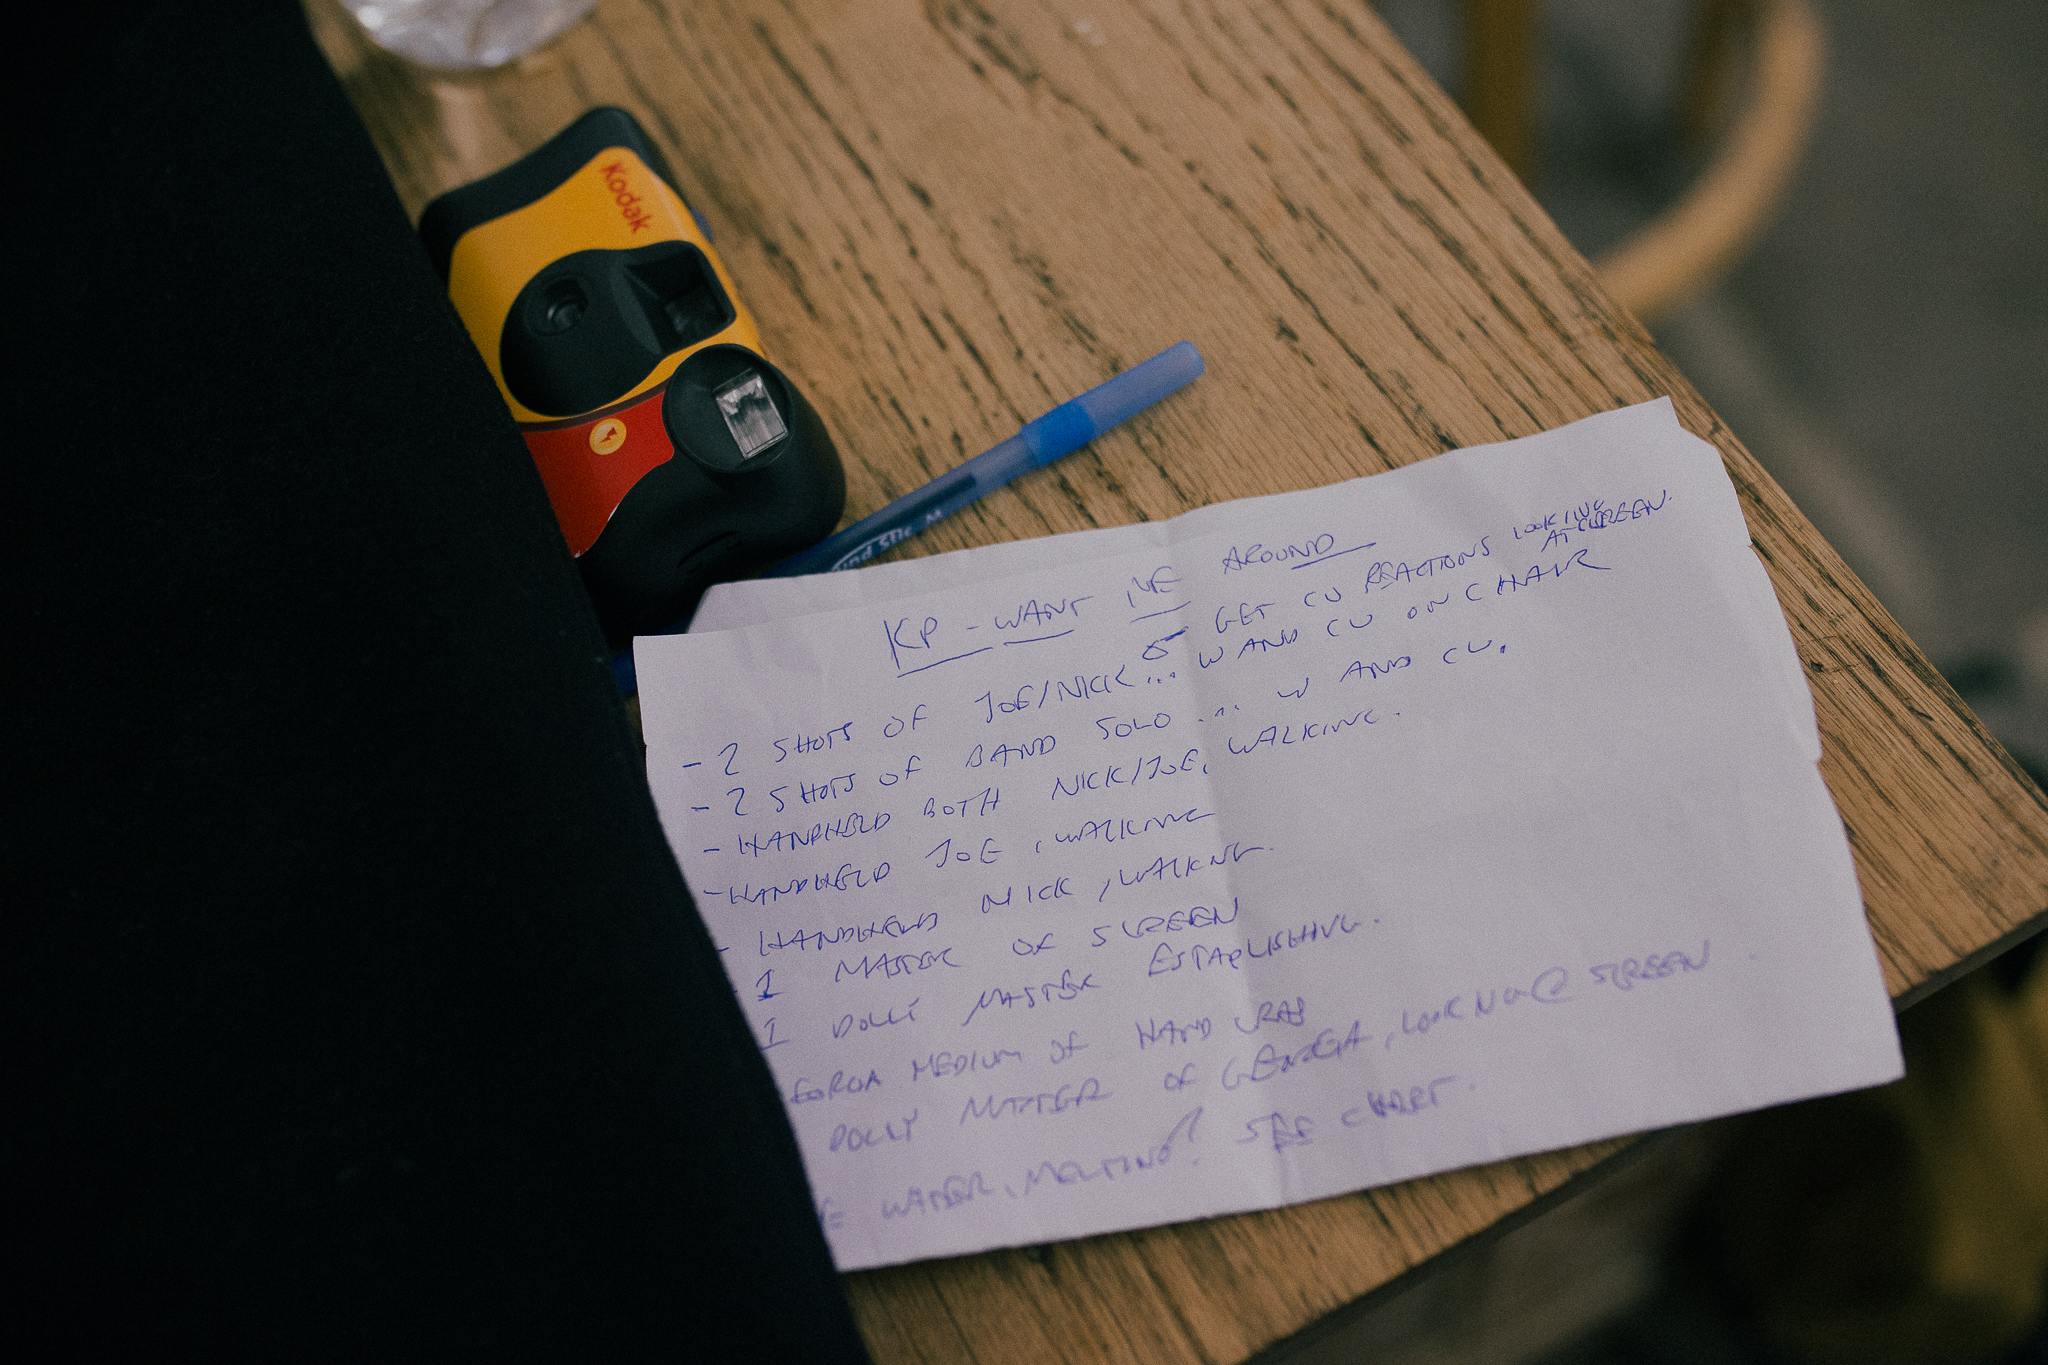 Kodak
Round Stic M
KP - WANT ME AROUND
- 2 SHOTS OF JOE/NICK... & GET CU REACTIONS LOOKING AT SCREEN.
W AND CU ON CHAIR
- 2 SHOTS OF BAND SOLO ... W AND CU.
- HANDHELD BOTH NICK/JOE, WALKING.
- HANDHELD JOE, WALKING
- HANDHELD NICK, WALKNG.
- 1 MASTER OF SCREEN
1 DOLLY MASTER ESTABLISHING.
MEDIUM OF HAND
DOLLY MASTER OF GEORGA, LOOKNG @ SCREEN.
WATER, MELTING? SEE CHART.